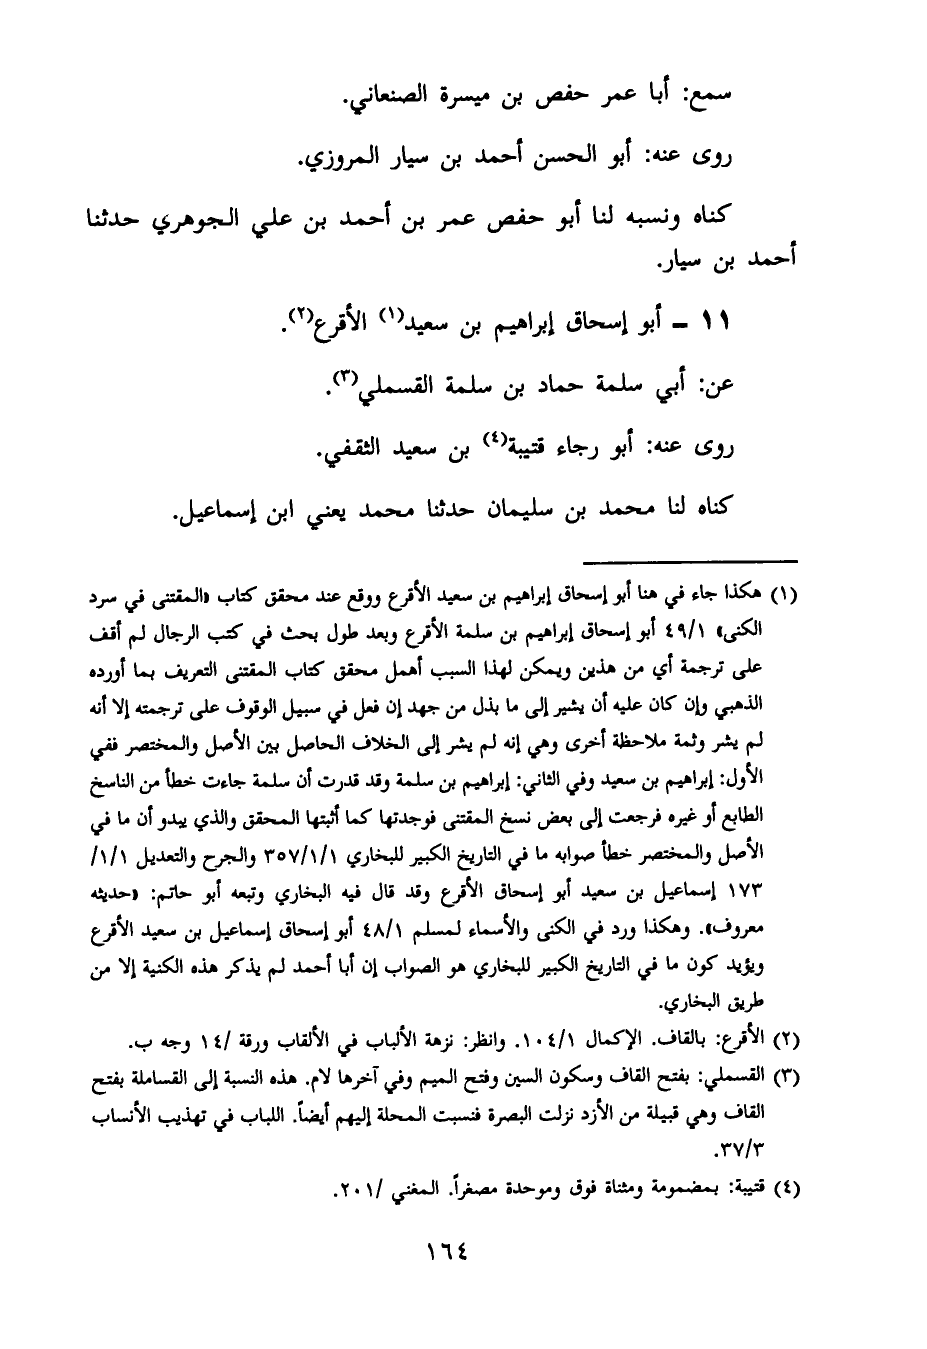 سمع: أبا عمر حفص بن ميسرة الصنعاني.
روى عنه: أبو الحسن أحمد بن سيار المروزي.
كناه ونسبه لنا أبو حفص عمر بن أحمد بن علي الجوهري حدثنا
أحمد بن سيار.
١١ - أبو إسحاق إبراهيم بن سعيد(١) الأقرع(٢).
عن: أبي سلمة حماد بن سلمة القسملي(٣).
روى عنه: أبو رجاء قتيبة(٤) بن سعيد الثقفي.
كناه لنا محمد بن سليمان حدثنا محمد يعني ابن إسماعيل.
(١) هكذا جاء في هنا أبو إسحاق إبراهيم بن سعيد الأقرع ووقع عند محقق كتاب «المقتنى في سرد
الكنى» ٤٩/١ أبو إسحاق إبراهيم بن سلمة الأقرع وبعد طول بحث في كتب الرجال لم أقف
على ترجمة أي من هذين ويمكن لهذا السبب أهمل محقق كتاب المقتنى التعريف بما أورده
الذهبي وإن كان عليه أن يشير إلى ما بذل من جهد إن فعل في سبيل الوقوف على ترجمته إلا أنه
لم يشر وثمة ملاحظة أخرى وهي إنه لم يشر إلى الخلاف الحاصل بين الأصل والمختصر ففي
الأول: إبراهيم بن سعيد وفي الثاني: إبراهيم بن سلمة وقد قدرت أن سلمة جاءت خطأ من الناسخ
الطابع أو غيره فرجعت إلى بعض نسخ المقتنى فوجدتها كما أثبتها المحقق والذي يبدو أن ما في
الأصل والمختصر خطأ صوابه ما في التاريخ الكبير للبخاري ٣٥٧/١/١ والجرح والتعديل ١/١/
١٧٣ إسماعيل بن سعيد أبو إسحاق الأقرع وقد قال فيه البخاري وتبعه أبو حاتم: «حديثه
معروف». وهكذا ورد في الكنى والأسماء لمسلم ٤٨/١ أبو إسحاق إسماعيل بن سعيد الأقرع
ويؤيد كون ما في التاريخ الكبير للبخاري هو الصواب إن أبا أحمد لم يذكر هذه الكنية إلا من
طريق البخاري.
(٢) الأقرع: بالقاف. الإكمال ١٠٤/١. وانظر: نزهة الألباب في الألقاب ورقة /١٤ وجه ب.
(٣) القسملي: بفتح القاف وسكون السين وفتح الميم وفي آخرها لام. هذه النسبة إلى القساملة بفتح
القاف وهي قبيلة من الأزد نزلت البصرة فنسبت المحلة إليهم أيضاً. اللباب في تهذيب الأنساب
٣٧/٣.
(٤) قتيبة: بمضمومة ومثناة فوق وموحدة مصغراً. المغني /٢٠١.
١٦٤